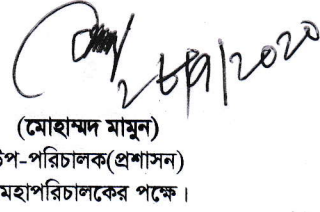 ২৮/৭/২০২০
(মোহাম্মদ মামুন)
উপ-পরিচালক(প্রশাসন)
মহাপরিচালকের পক্ষে।